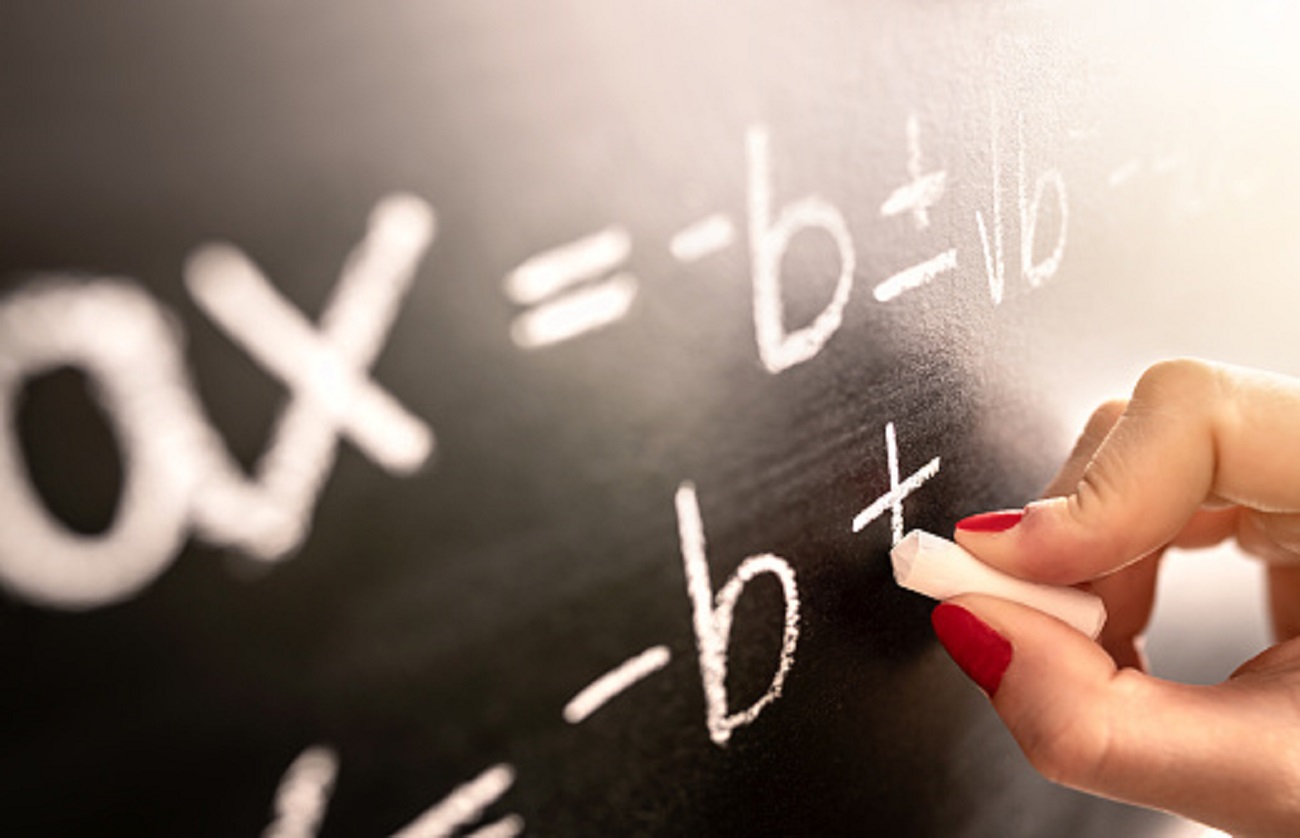 ax = -b ± √b
-b +